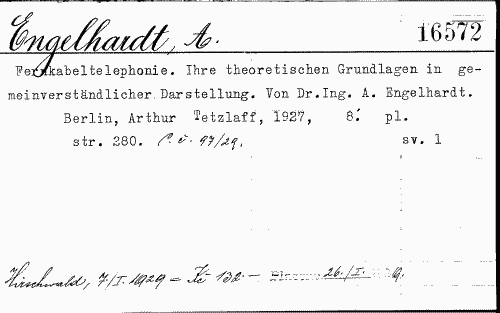 Engelhardt, A.
16572
Fernkabeltelephonie. Ihre theoretischen Grundlagen in ge-
meinverständlicher Darstellung. Von Dr.Ing. A. Engelhardt.
Berlin, Arthur Tetzlaff, 1927, 8º. pl.
str. 280. č. 97/29. sv. 1
Hirschwald, 7/I. 1929 = Kč 132 - 26./I.